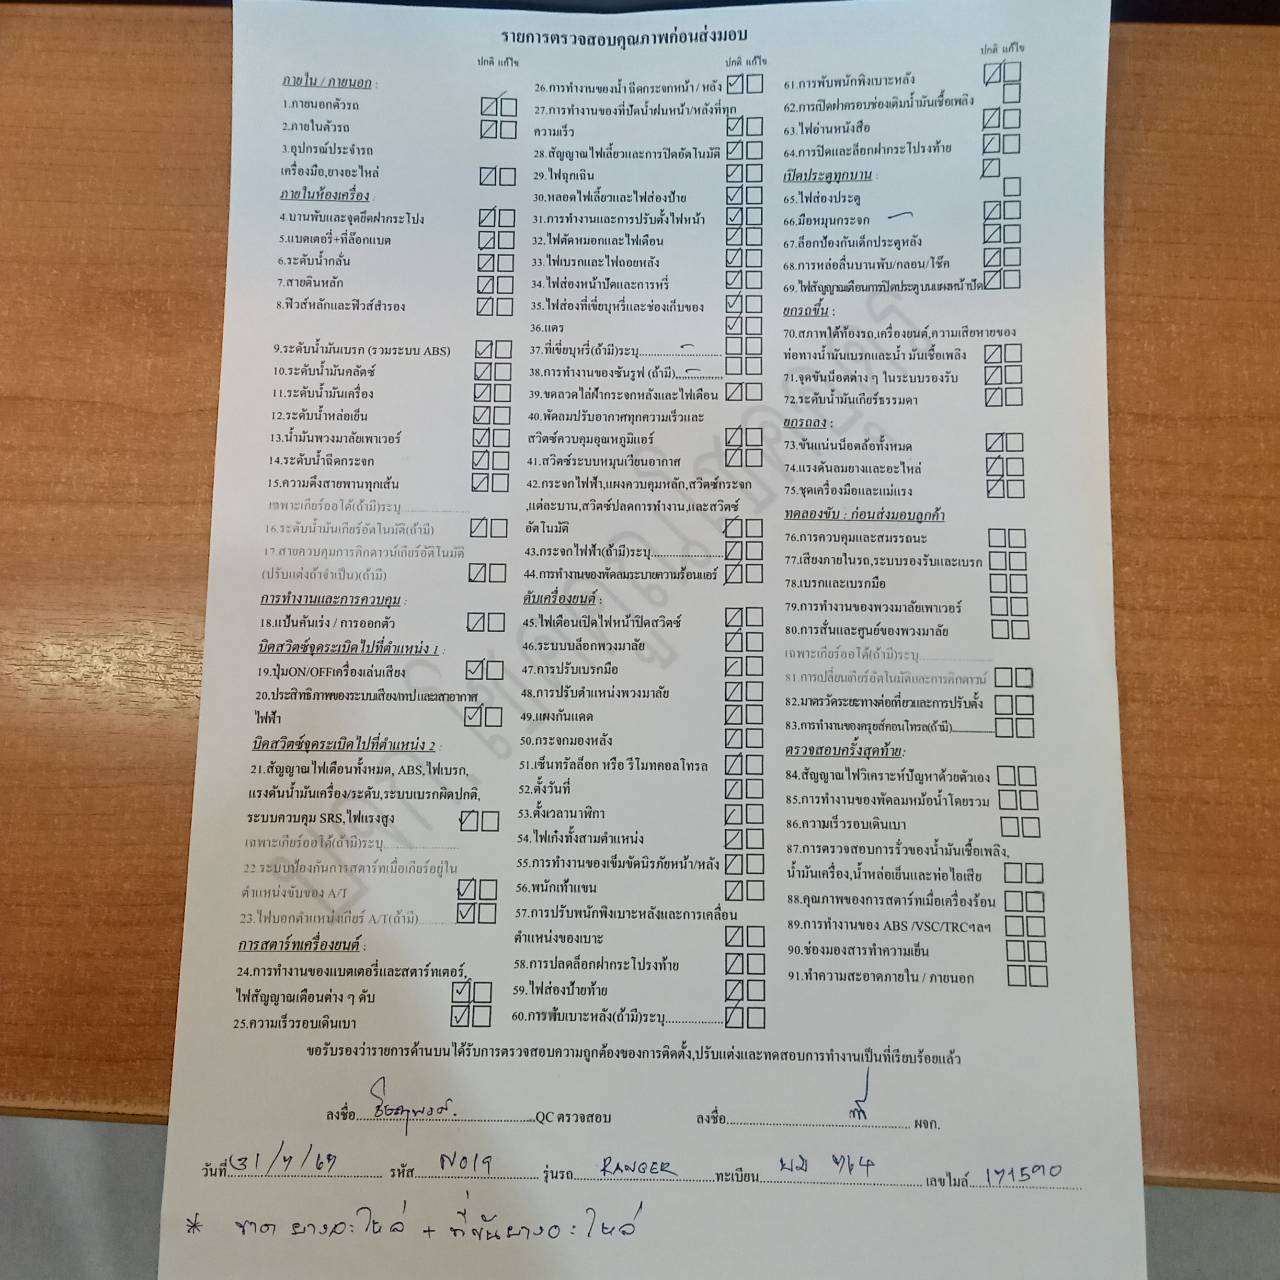 รายการตรวจสอบคุณภาพก่อนส่งมอบ
ปกติ แก้ไข
ภายใน / ภายนอก :
1.ภายนอกตัวรถ
2.ภายในตัวรถ
3.อุปกรณ์ประจำรถ
เครื่องมือ,ยางอะไหล่
ภายในห้องเครื่อง :
4.บานพับและจุดยึดฝากระโปรง
5.แบตเตอรี่+ที่ล๊อกแบต
6.ระดับน้ำกลั่น
7.สายดินหลัก
8.ฟิวส์หลักและฟิวส์สำรอง
9.ระดับน้ำมันเบรก (รวมระบบ ABS)
10.ระดับน้ำมันคลัตซ์
11.ระดับน้ำมันเครื่อง
12.ระดับน้ำหล่อเย็น
13.น้ำมันพวงมาลัยเพาเวอร์
14.ระดับน้ำฉีดกระจก
15.ความตึงสายพานทุกเส้น
เฉพาะเกียร์ออโต้(ถ้ามี)ระบุ....................
16.ระดับน้ำมันเกียร์อัตโนมัติ(ถ้ามี)
17.สายควบคุมการคิกดาวน์เกียร์อัติโนมัติ
(ปรับแต่งถ้าจำเป็น)(ถ้ามี)
การทำงานและการควบคุม :
18.แป้นคันเร่ง / การออกตัว
บิดสวิตซ์จุดระเบิดไปที่ตำแหน่ง 1 :
19.ปุ่มON/OFFเครื่องเล่นเสียง
20.ประสิทธิภาพของระบบเสียง/เทป และเสาอากาศ
ไฟฟ้า
บิดสวิตซ์จุดระเบิดไปที่ตำแหน่ง 2 :
21.สัญญาณไฟเตือนทั้งหมด, ABS,ไฟเบรก,
แรงดันน้ำมันเครื่อง/ระดับ,ระบบเบรกผิดปกติ,
ระบบควบคุม SRS,ไฟแรงสูง
เฉพาะเกียร์ออโต้(ถ้ามี)ระบุ....................
22 ระบบป้องกันการสตาร์ทเมื่อเกียร์อยู่ใน
ตำแหน่งขับของ A/T
23.ไฟบอกตำแหน่งเกียร์ A/T(ถ้ามี)..........
การสตาร์ทเครื่องยนต์ :
24.การทำงานของแบตเตอรี่และสตาร์ทเตอร์,
ไฟสัญญาณเตือนต่าง ๆ ดับ
25.ความเร็วรอบเดินเบา
ปกติ แก้ไข
26.การทำงานของน้ำ ฉีดกระจกหน้า / หลัง
27.การทำงานของที่ปัดน้ำฝนหน้า/หลังที่ทุก
ความเร็ว
28.สัญญาณไฟเลี้ยวและการปิดอัตโนมัติ
29.ไฟฉุกเฉิน
30.หลอดไฟเลี้ยวและไฟส่องป้าย
31.การทำงานและการปรับตั้งไฟหน้า
32.ไฟตัดหมอกและไฟเตือน
33.ไฟเบรกและไฟถอยหลัง
34.ไฟส่องหน้าปัดและการหรี่
35.ไฟส่องที่เขี่ยบุหรี่และช่องเก็บของ
36.แตร
37.ที่เขี่ยบุหรี่(ถ้ามี)ระบุ....................
38.การทำงานของซันรูฟ (ถ้ามี)...............
39.ขดลวดไล่ฝ้ากระจกหลังและไฟเตือน
40.พัดลมปรับอากาศทุกความเร็วและ
สวิตซ์ควบคุมอุณหภูมิแอร์
41.สวิตซ์ระบบหมุนเวียนอากาศ
42.กระจกไฟฟ้า,แผงควบคุมหลัก,สวิตซ์กระจก
,แต่ละบาน,สวิตซ์ปลดการทำงาน,และสวิตซ์
อัตโนมัติ
43.กระจกไฟฟ้า(ถ้ามี)ระบุ....................
44.การทำงานของพัดลมระบายความร้อนแอร์
ดับเครื่องยนต์ :
45.ไฟเตือนเปิดไฟหน้าปิดสวิตซ์
46.ระบบบล็อกพวงมาลัย
47.การปรับเบรกมือ
48.การปรับตำแหน่งพวงมาลัย
49.แผงกันแดด
50.กระจกมองหลัง
51.เซ็นทรัลล็อก หรือ รีโมทคอลโทรล
52.ตั้งวันที่
53.ตั้งเวลานาฬิกา
54.ไฟเก๋งทั้งสามตำแหน่ง
55.การทำงานของเข็มขัดนิรภัยหน้า/หลัง
56.พนักเท้าแขน
57.การปรับพนักพิงเบาะหลังและการเคลื่อน
ตำแหน่งของเบาะ
58.การปลดล็อกฝากระโปรงท้าย
59.ไฟส่องป้ายท้าย
60.การพับเบาะหลัง(ถ้ามี)ระบุ....................
ปกติ แก้ไข
61.การพับพนักพิงเบาะหลัง
62.การเปิดฝาครอบช่องเติมน้ำมันเชื้อเพลิง
63.ไฟอ่านหนังสือ
64.การปิดและล็อกฝากระโปรงท้าย
เปิดประตูทุกบาน :
65.ไฟส่องประตู
66.มือหมุนกระจก
67.ล็อกป้องกันเด็กประตูหลัง
68.การหล่อลื่นบานพับ/กลอน/โช๊ค
69.ไฟสัญญาณเตือนการปิดประตู บนแผงหน้าปัด
ยกรถขึ้น :
70.สภาพใต้ท้องรถ,เครื่องยนต์,ความเสียหายของ
ท่อทางน้ำมันเบรกและน้ำ มันเชื้อเพลิง
71.จุดขันน็อตต่าง ๆ ในระบบรองรับ
72.ระดับน้ำมันเกียร์ธรรมดา
ยกรถลง :
73.ขันแน่นน็อตล้อทั้งหมด
74.แรงดันลมยางและอะไหล่
75.ชุดเครื่องมือและแม่แรง
ทดลองขับ : ก่อนส่งมอบลูกค้า
76.การควบคุมและสมรรถนะ
77.เสียงภายในรถ,ระบบรองรับและเบรก
78.เบรกและเบรกมือ
79.การทำงานของพวงมาลัยเพาเวอร์
80.การสั่นและศูนย์ของพวงมาลัย
เฉพาะเกียร์ออโต้(ถ้ามี)ระบุ....................
81.การเปลี่ยนเกียร์อัตโนมัติและการคิกดาวน์
82.มาตรวัดระยะทางต่อเที่ยวและการปรับตั้ง
83.การทำงานของครุยส์คอนโทรล(ถ้ามี)..........
ตรวจสอบครั้งสุดท้าย:
84.สัญญาณไฟวิเคราะห์ปัญหาด้วยตัวเอง
85.การทำงานของพัดลมหม้อน้ำโดยรวม
86.ความเร็วรอบเดินเบา
87.การตรวจสอบการรั่วของน้ำมันเชื้อเพลิง,
น้ำมันเครื่อง,น้ำหล่อเย็นและท่อไอเสีย
88.คุณภาพของการสตาร์ทเมื่อเครื่องร้อน
89.การทำงานของ ABS /VSC/TRCฯลฯ
90.ช่องมองสารทำความเย็น
91.ทำความสะอาดภายใน / ภายนอก
ขอรับรองว่ารายการด้านบนได้รับการตรวจสอบความถูกต้องของการติดตั้ง,ปรับแต่งและทดสอบการทำงานเป็นที่เรียบร้อยแล้ว
ลงชื่อ....................QC ตรวจสอบ ลงชื่อ.................... ผจก.
วันที่ 31/7/67 รหัส N019 รุ่นรถ RANGER ทะเบียน ยม 764 เลขไมล์ 171590
* ขาด ยางอะไหล่ + ที่ขันยางอะไหล่